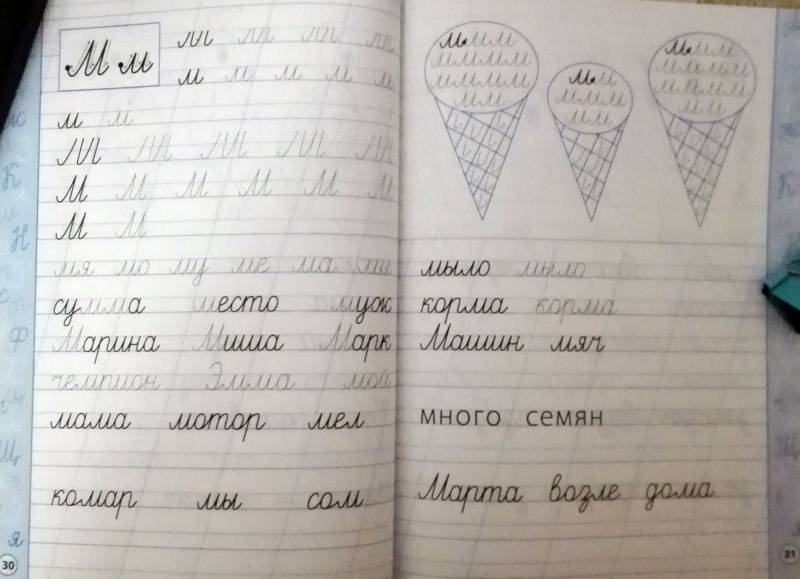 М м м м м м
м м м м м
м м
М М М М М
М М М М М М
М М
мя мо му ме ма ми
сумма место муж
Марина Миша Марк
чемпион Эмма мой
мама мотор мел
комар мы сом
30
ммм
мммм
мммм
мм
мм
ммм
мм
ммм
мммм
мммм
мм
мыло мыло
корма корма
Машин мяч
много семян
Марта возле дома
31